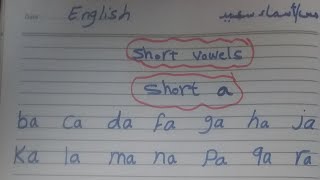 English مس/أسماء سعيد
Short vowels
Short a
ba ca da fa ga ha ja
Ka la ma na Pa qa ra